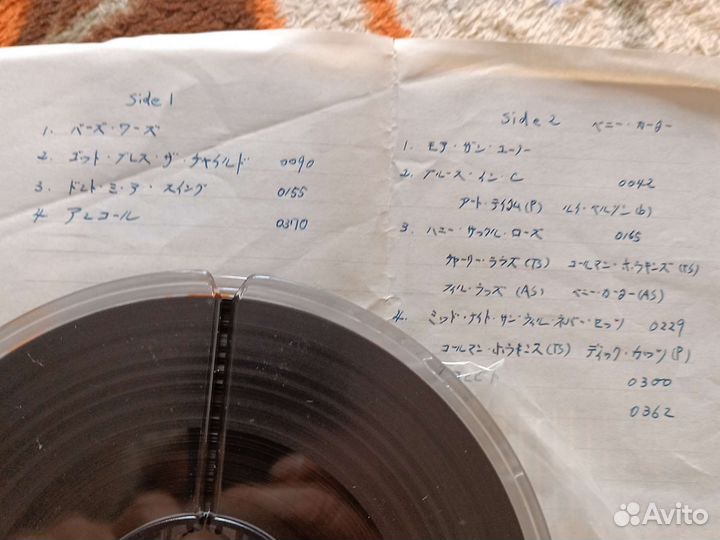 Side 1
1. バーズ・ワーズ
2. ゴット・ブレス・ザ・チャイルド 0090
3. ドント・ミー・ア・スイング 0155
4. アルコール 0370
Side 2 ベニー・カーター
1. モア・ザン・ユー・ノー
2. ブルース・イン・C 0042
アート・テイタム(P) ルイ・ベルソン(b)
3. ハニー・サックル・ローズ 0165
チャーリー・ラウズ(TS) コールマン・ホウキンズ(TS)
フィル・ウッズ(AS) ベニー・カーター(AS)
4. ミッド・ナイト・サン・ウィル・ネバー・セッツ 0229
コールマン・ホウキンス(TS) ディック・カッツ(P)
0300
0362
Avito